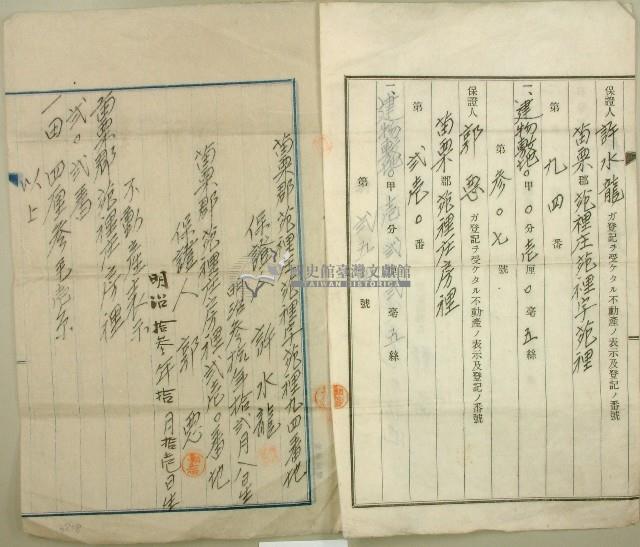 保證人許水龍ガ登記ヲ受ケタル不動產ノ表示及登記ノ番號
苗栗郡苑裡庄苑裡字苑裡
第九四番
一、建物敷地〇甲〇分壱厘〇毫五絲
第参〇七號
保證人郭 ガ登記ヲ受ケタル不動產ノ表示及登記ノ番號
苗栗郡苑裡庄房裡
第弐壱〇番
一、建物敷地〇甲壱分弐 毫五絲
第弐九 號
苗栗郡苑裡庄苑裡字苑裡九四番地
保證人 許水龍
明治参 年拾弐月八日生
苗栗郡苑裡庄房裡弐壱〇番地
保證人 郭
明治拾参年拾月拾壱日生
不動產表示
苗栗郡苑裡庄房裡
弐〇弐番
一田 四厘参毛壱糸
以上
國史館臺灣文獻館
TAIWAN HISTORICA